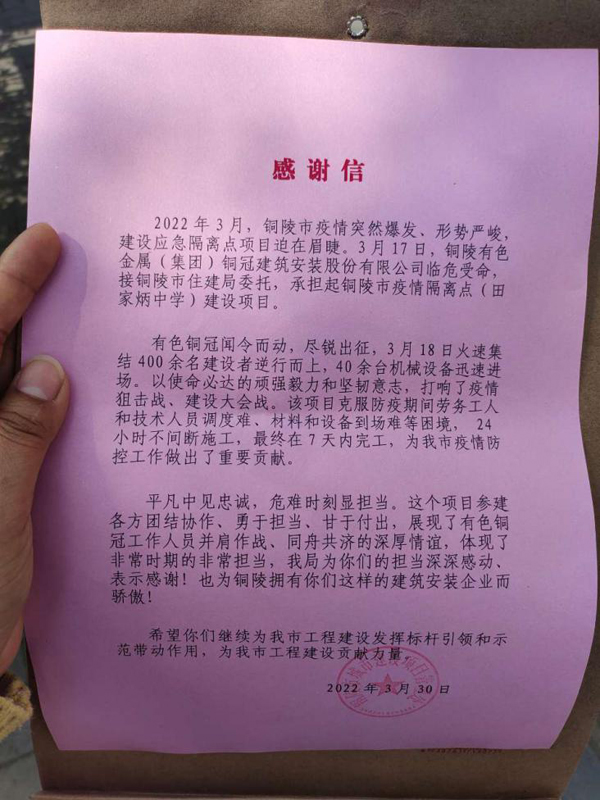 感谢信
2022年3月，铜陵市疫情突然爆发、形势严峻，
建设应急隔离点项目迫在眉睫。3月17日，铜陵有色
金属（集团）铜冠建筑安装股份有限公司临危受命，
接铜陵市住建局委托，承担起铜陵市疫情隔离点（田
家炳中学）建设项目。
有色铜冠闻令而动，尽锐出征，3月18日火速集
结400余名建设者逆行而上，40余台机械设备迅速进
场。以使命必达的顽强毅力和坚韧意志，打响了疫情
狙击战、建设大会战。该项目克服防疫期间劳务工人
和技术人员调度难、材料和设备到场难等困境，24
小时不间断施工，最终在7天内完工，为我市疫情防
控工作做出了重要贡献。
平凡中见忠诚，危难时刻显担当。这个项目参建
各方团结协作、勇于担当、甘于付出，展现了有色铜
冠工作人员并肩作战、同舟共济的深厚情谊，体现了
非常时期的非常担当，我局为你们的担当深深感动、
表示感谢！也为铜陵拥有你们这样的建筑安装企业而
骄傲！
希望你们继续为我市工程建设发挥标杆引领和示
范带动作用，为我市工程建设贡献力量。
2022年3月30日